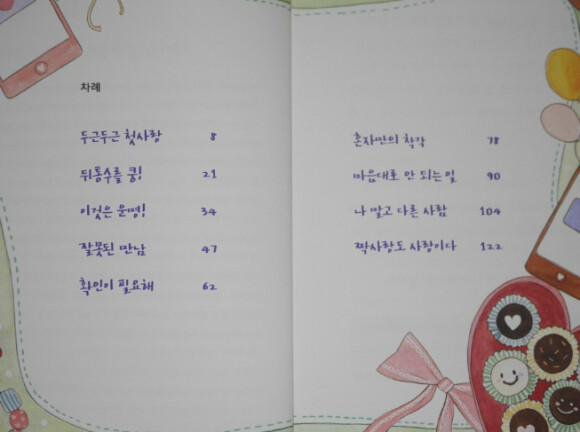 차례
두근두근 첫사랑 8
뒤통수를 쿵! 21
이것은 운명! 34
잘못된 만남 47
확인이 필요해 62
혼자만의 착각 78
마음대로 안 되는 일 90
나 말고 다른 사람 104
짝사랑도 사랑이다 122